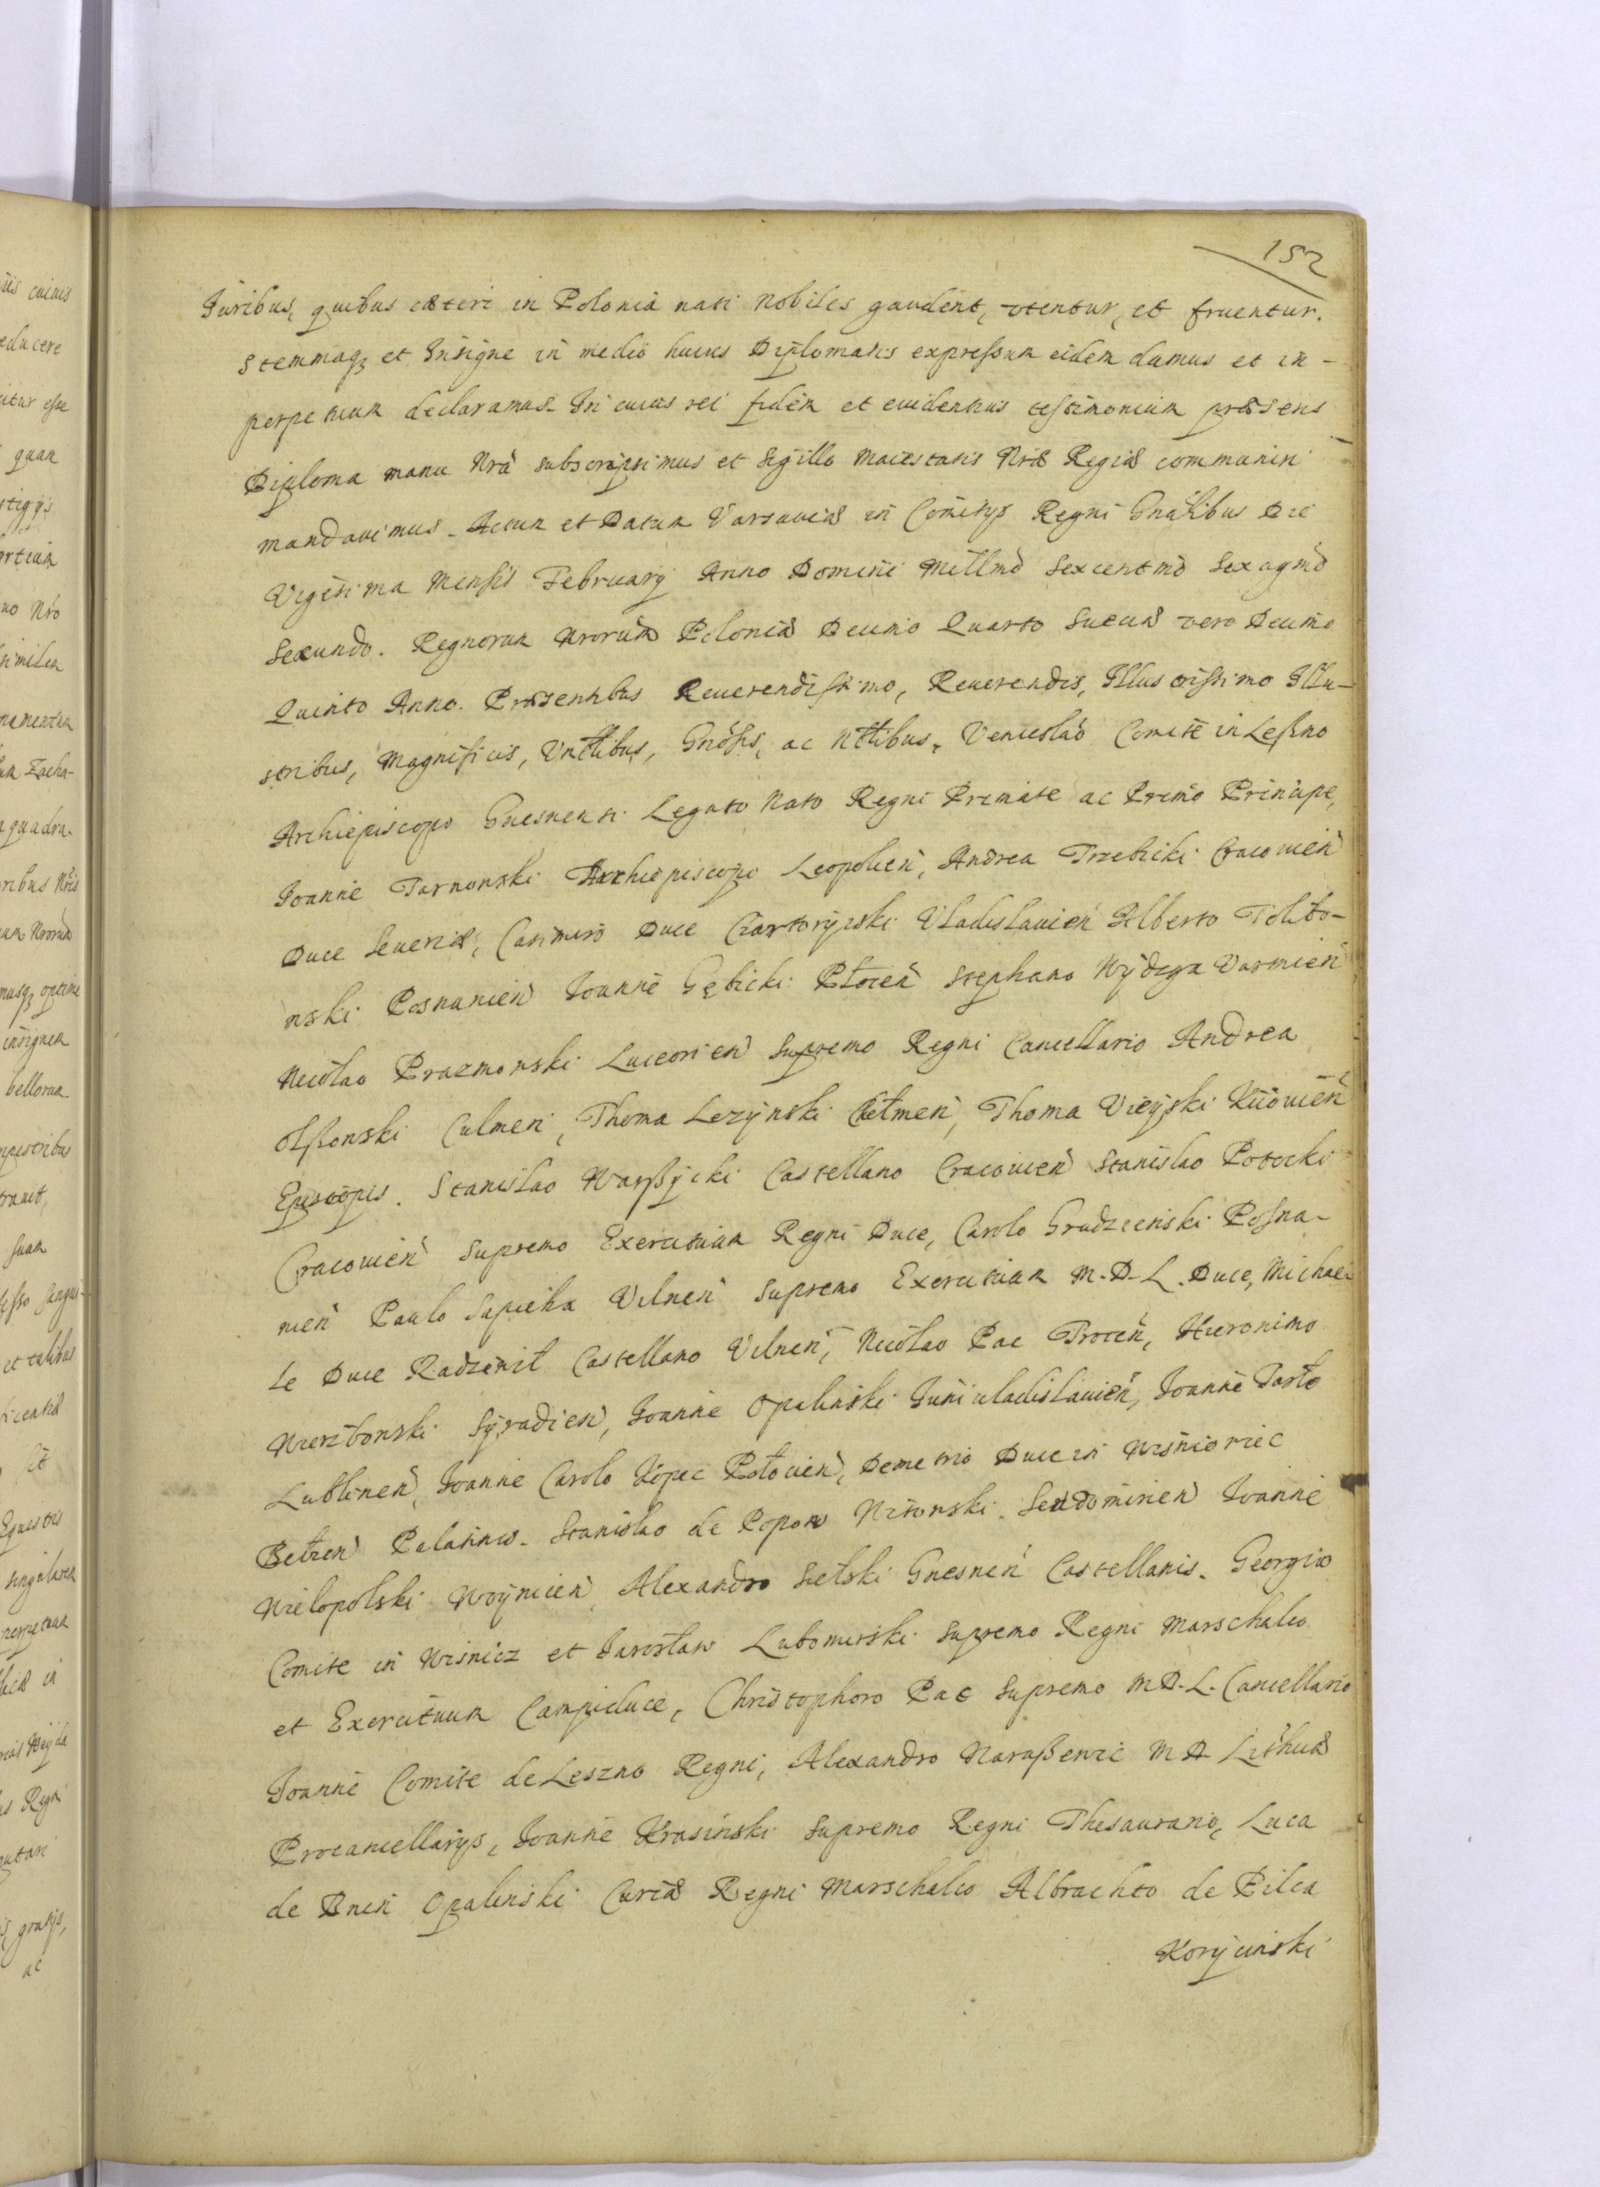 152
Juribus, quibus caeteri in Polonia nati Nobiles gaudent, utentur, et fruentur.
Stemmaq3 et Insigne in medio huius Diplomatis expressum eidem damus et in-
perpetuum declaramus. In cuius rei fidem et evidentius testimonium praesens
Diploma manu Nra subscripsimus et Sigillo Maiestatis Nrae Regiae communiri
mandavimus. Actum et Datum Varsaviae in Comitys Regni Gnalibus Die
Vigesima Mensis February Anno Domini Millmo Sexcentmo Sexagmo
Secundo. Regnorum Nrorum Poloniae Decimo Quarto Sueciae vero Decimo
Quinto Anno. Praesentibus Reverendissimo, Reverendis, Illustrissimo Illu-
stribus, Magnificis, Vrtlibus, Gnosis, ac Ntlibus, Venceslao Comite in Leßno
Archiepiscopo Gnesnensi Legato Nato Regni Primate ac Primo Principe,
Joanne Tarnowski Archiepiscopo Leopolien, Andrea Trzebicki Cracovien
Duce Severiae, Casimiro Duce Czartoryiski Vladislavien Alberto Tolibo-
wski Posnanien Joanne Gębicki Płocen Stephano Wydzga Varmien
Nicolao Prazmowski Luceorien Supremo Regni Cancellario Andrea
Olßowski Culmen, Thoma Lezynski Chełmen, Thoma Uieyski Kiiovien
Episcopis. Stanislao Warßycki Castellano Cracovien Stanislao Potocki
Cracovien Supremo Exercituum Regni Duce, Carolo Grudzienski Posna-
nien Paulo Sapieha Vilnen Supremo Exercituum M. D. L. Duce, Michae-
le Duce Radziwił Castellano Vilnen, Nicolao Pac Trocen, Hieronimo
Wierzbowski Syradien, Joanne Opalinski Juniuladislavien, Joanne Tarło
Lublinen, Joanne Carolo Kopec Połocien, Demetrio Duce in Wisniowiec
Bełzen Palatinis. Stanislao de Popow Witowski Sendomirien Joanne
Wielopolski Woynicien, Alexandro Sielski Gnesnen Castellanis. Georgio
Comite in Wisnicz et Jarosław Lubomirski Supremo Regni Marschalco
et Exercituum Campiduce, Christophoro Pac Supremo M D. L. Cancellario
Joanne Comite de Leszno Regni, Alexandro Naraßewic M D Lithuae
Procancellarys, Joanne Krasinski Supremo Regni Thesaurario, Luca
de Bnin Opalinski Curiae Regni Marschalco Albrachto de Pilca
Korycinski